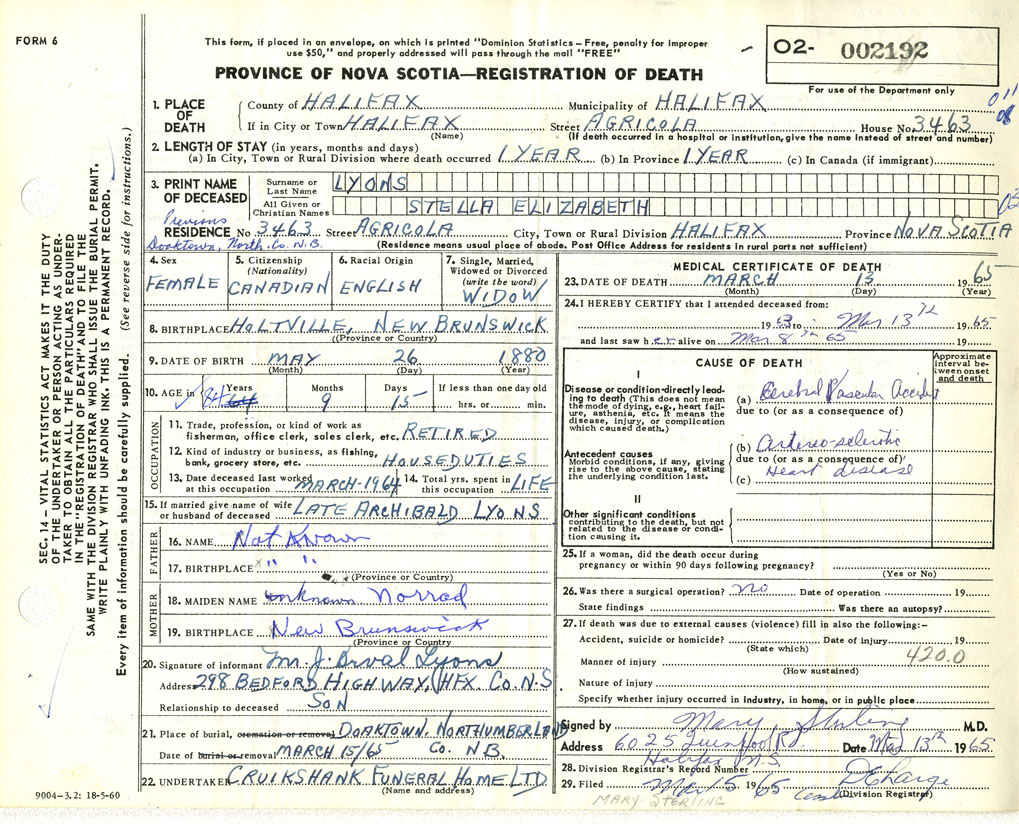 FORM 6
This form, if placed in an envelope, on which is printed "Dominion Statistics – Free, penalty for improper
use $50," and properly addressed will pass through the mail "FREE"
PROVINCE OF NOVA SCOTIA—REGISTRATION OF DEATH
O2- 002192
For use of the Department only
011
08
1. PLACE OF DEATH
County of HALIFAX Municipality of HALIFAX
If in City or Town HALIFAX Street AGRICOLA House No. 3463
(Name) (If death occurred in a hospital or institution, give the name instead of street and number)
2. LENGTH OF STAY (in years, months and days)
(a) In City, Town or Rural Division where death occurred 1 YEAR (b) In Province 1 YEAR (c) In Canada (if immigrant)
3. PRINT NAME OF DECEASED
Surname or Last Name LYONS
All Given or Christian Names STELLA ELIZABETH
03
Previous
RESIDENCE No 3463 Street AGRICOLA City, Town or Rural Division HALIFAX Province NOVA SCOTIA
Doaktown, North. Co. N.B. (Residence means usual place of abode. Post Office Address for residents in rural parts not sufficient)
4. Sex FEMALE
5. Citizenship (Nationality) CANADIAN
6. Racial Origin ENGLISH
7. Single, Married, Widowed or Divorced (write the word) WIDOW
8. BIRTHPLACE HOLTVILLE, NEW BRUNSWICK
(Province or Country)
9. DATE OF BIRTH MAY 26 1880
(Month) (Day) (Year)
10. AGE in Years 84 Months 9 Days 15 If less than one day old
hrs. or min.
OCCUPATION
11. Trade, profession, or kind of work as
fisherman, office clerk, sales clerk, etc. RETIRED
12. Kind of industry or business, as fishing,
bank, grocery store, etc. HOUSEDUTIES
13. Date deceased last worked at this occupation MARCH-1964 14. Total yrs. spent in this occupation LIFE
15. If married give name of wife
or husband of deceased LATE ARCHIBALD LYONS
FATHER
16. NAME Not Known
17. BIRTHPLACE " "
(Province or Country)
MOTHER
18. MAIDEN NAME unknown Norrad
19. BIRTHPLACE New Brunswick
(Province or Country)
20. Signature of informant Mr. J. Orval Lyons
Address 298 BEDFORD HIGHWAY, HFX Co. N.S.
Relationship to deceased SON
21. Place of burial, cremation or removal DOAKTOWN, NORTHUMBERLAND
Date of burial or removal MARCH 15/65 Co. N.B.
22. UNDERTAKER CRUIKSHANK FUNERAL HOME LTD
(Name and address)
9004-3.2: 18-5-60
MEDICAL CERTIFICATE OF DEATH
23. DATE OF DEATH MARCH 13 1965
(Month) (Day) (Year)
24. I HEREBY CERTIFY that I attended deceased from:
1963 to Mar 13th 1965
and last saw her alive on Mar 8th 65 19
CAUSE OF DEATH
Approximate interval between onset and death
I
Disease or condition directly leading to death (This does not mean the mode of dying, e.g., heart failure, asthenia, etc. It means the disease, injury, or complication which caused death.)
(a) Cerebral Vascular Accident
due to (or as a consequence of)
Antecedent causes
Morbid conditions, if any, giving rise to the above cause, stating the underlying condition last.
(b) Arterio-sclerotic
due to (or as a consequence of)
Heart disease
(c)
II
Other significant conditions
contributing to the death, but not related to the disease or condition causing it.
25. If a woman, did the death occur during
pregnancy or within 90 days following pregnancy?
(Yes or No)
26. Was there a surgical operation? no Date of operation 19
State findings Was there an autopsy?
27. If death was due to external causes (violence) fill in also the following:–
Accident, suicide or homicide? Date of injury 19
(State which)
420.0
Manner of injury
(How sustained)
Nature of injury
Specify whether injury occurred in industry, in home, or in public place
Signed by Mary Stirling M.D.
Address 6025 Quinpool Rd Date Mar 13th 1965
Halifax N.S.
28. Division Registrar's Record Number
29. Filed Mar 15 1965
(Division Registrar)
MARY STERLING
SEC. 14—VITAL STATISTICS ACT MAKES IT THE DUTY
OF THE UNDERTAKER OR PERSON ACTING AS UNDER-
TAKER TO OBTAIN ALL THE PARTICULARS REQUIRED
IN THE "REGISTRATION OF DEATH" AND TO FILE THE
SAME WITH THE DIVISION REGISTRAR WHO SHALL ISSUE THE BURIAL PERMIT.
WRITE PLAINLY WITH UNFADING INK. THIS IS A PERMANENT RECORD.
Every item of information should be carefully supplied. (See reverse side for instructions.)